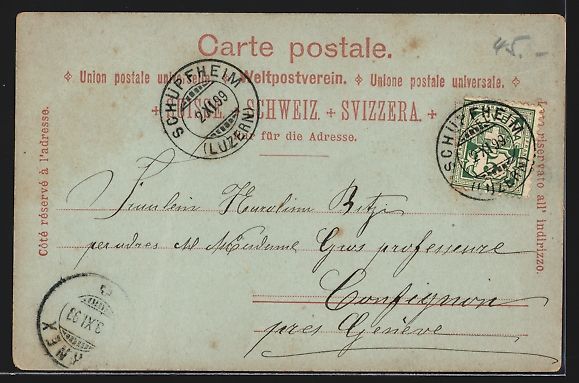 45.-
Carte postale.
Union postale universelle. Weltpostverein. Unione postale universale.
SUISSE. SCHWEIZ. SVIZZERA.
Nur für die Adresse.
Côté réservé à l'adresse.
Lato riservato all' indirizzo.
SCHÜPFHEIM
2.XI.99
(LUZERN)
SCHÜPFHEIM
2.XI.99
(LUZERN)
Fräulein Karolina Betzi
per adres M Madame Gros professeure
Confignon
pres Genève
3.XI.99